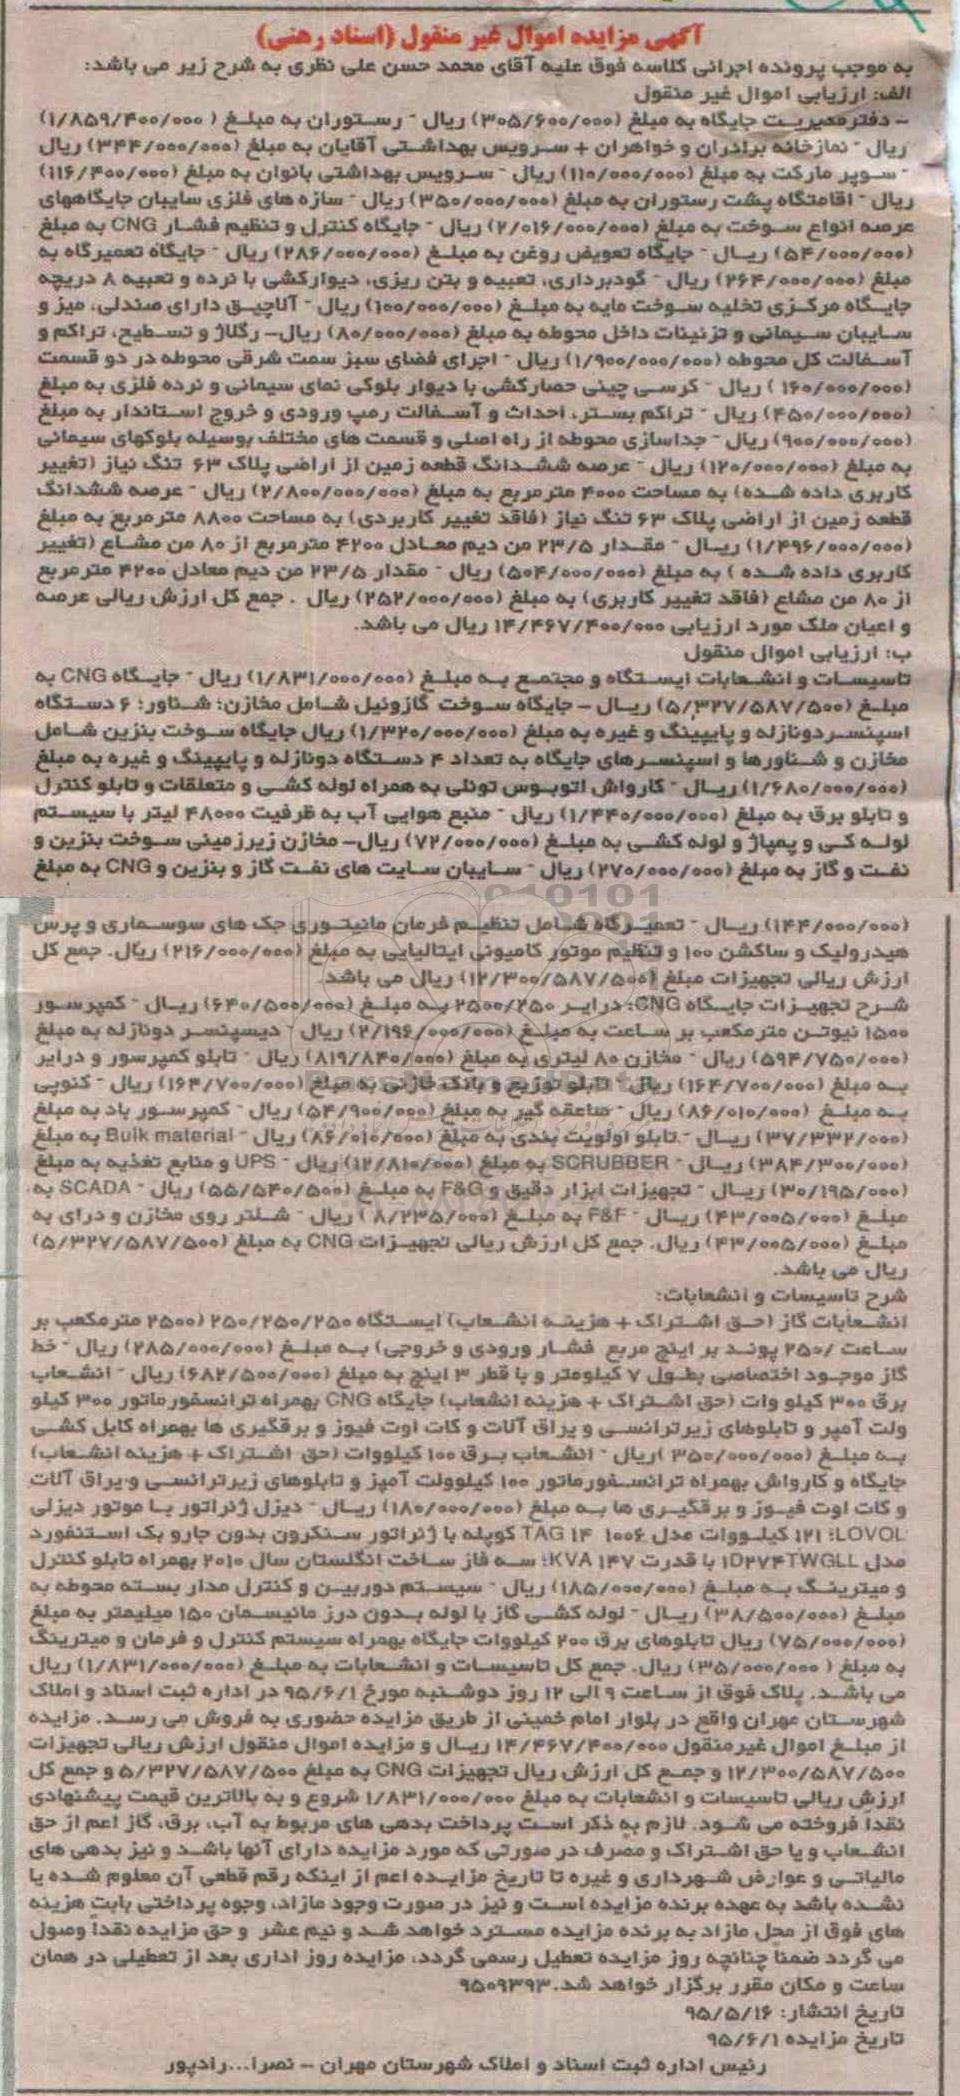 آگهی مزایده اموال غیر منقول (اسناد رهنی)
به موجب پرونده اجرائی کلاسه فوق علیه آقای محمد حسن علی نظری به شرح زیر می باشد:
الف: ارزیابی اموال غیر منقول
- دفتر مدیریت جایگاه به مبلغ (۳۰۵/۶۰۰/۰۰۰) ریال - رستوران به مبلغ (۱/۸۵۹/۴۰۰/۰۰۰)
ریال - نمازخانه برادران و خواهران + سرویس بهداشتی آقایان به مبلغ (۳۴۴/۰۰۰/۰۰۰) ریال
- سوپر مارکت به مبلغ (۱۱۰/۰۰۰/۰۰۰) ریال - سرویس بهداشتی بانوان به مبلغ (۱۱۶/۴۰۰/۰۰۰)
ریال - اقامتگاه پشت رستوران به مبلغ (۳۵۰/۰۰۰/۰۰۰) ریال - سازه های فلزی سایبان جایگاههای
عرضه انواع سوخت به مبلغ (۲/۰۱۶/۰۰۰/۰۰۰) ریال - جایگاه کنترل و تنظیم فشار CNG به مبلغ
(۵۴/۰۰۰/۰۰۰) ریال - جایگاه تعویض روغن به مبلغ (۲۸۶/۰۰۰/۰۰۰) ریال - جایگاه تعمیرگاه به
مبلغ (۲۶۴/۰۰۰/۰۰۰) ریال - گودبرداری، تعبیه و بتن ریزی، دیوارکشی با نرده و تعبیه ۸ دریچه
جایگاه مرکزی تخلیه سوخت مایه به مبلغ (۱۰۰/۰۰۰/۰۰۰) ریال - آلاچیق دارای صندلی، میز و
سایبان سیمانی و تزئینات داخل محوطه به مبلغ (۸۰/۰۰۰/۰۰۰) ریال- رگلاژ و تسطیح، تراکم و
آسفالت کل محوطه (۱/۹۰۰/۰۰۰/۰۰۰) ریال - اجرای فضای سبز سمت شرقی محوطه در دو قسمت
(۱۶۰/۰۰۰/۰۰۰ ) ریال - کرسی چینی حصارکشی با دیوار بلوکی نمای سیمانی و نرده فلزی به مبلغ
(۴۵۰/۰۰۰/۰۰۰) ریال - تراکم بستر، احداث و آسفالت رمپ ورودی و خروج استاندار به مبلغ
(۹۰۰/۰۰۰/۰۰۰) ریال - جداسازی محوطه از راه اصلی و قسمت های مختلف بوسیله بلوکهای سیمانی
به مبلغ (۱۲۰/۰۰۰/۰۰۰) ریال - عرصه ششدانگ قطعه زمین از اراضی پلاک ۶۳ تنگ نیاز (تغییر
کاربری داده شده) به مساحت ۴۰۰۰ مترمربع به مبلغ (۲/۸۰۰/۰۰۰/۰۰۰) ریال - عرصه ششدانگ
قطعه زمین از اراضی پلاک ۶۳ تنگ نیاز (فاقد تغییر کاربردی) به مساحت ۸۸۰۰ مترمربع به مبلغ
(۱/۴۹۶/۰۰۰/۰۰۰) ریال - مقدار ۲۳/۵ من دیم معادل ۴۲۰۰ مترمربع از ۸۰ من مشاع (تغییر
کاربری داده شده ) به مبلغ (۵۰۴/۰۰۰/۰۰۰) ریال - مقدار ۲۳/۵ من دیم معادل ۴۲۰۰ مترمربع
از ۸۰ من مشاع (فاقد تغییر کاربری) به مبلغ (۲۵۲/۰۰۰/۰۰۰) ریال . جمع کل ارزش ریالی عرصه
و اعیان ملک مورد ارزیابی ۱۴/۴۶۷/۴۰۰/۰۰۰ ریال می باشد.
ب: ارزیابی اموال منقول
تاسیسات و انشعابات ایستگاه و مجتمع به مبلغ (۱/۸۳۱/۰۰۰/۰۰۰) ریال - جایگاه CNG به
مبلغ (۵/۳۲۷/۵۸۷/۵۰۰) ریال - جایگاه سوخت گازوئیل شامل مخازن؛ شناور؛ ۶ دستگاه
اسپنسر دونازله و پایپینگ و غیره به مبلغ (۱/۳۲۰/۰۰۰/۰۰۰) ریال جایگاه سوخت بنزین شامل
مخازن و شناورها و اسپنسرهای جایگاه به تعداد ۴ دستگاه دونازله و پایپینگ و غیره به مبلغ
(۱/۶۸۰/۰۰۰/۰۰۰) ریال - کارواش اتوبوس تونلی به همراه لوله کشی و متعلقات و تابلو کنترل
و تابلو برق به مبلغ (۱/۴۴۰/۰۰۰/۰۰۰) ریال - منبع هوایی آب به ظرفیت ۴۸۰۰۰ لیتر با سیستم
لوله کی و پمپاژ و لوله کشی به مبلغ (۷۲/۰۰۰/۰۰۰) ریال- مخازن زیرزمینی سوخت بنزین و
نفت و گاز به مبلغ (۲۷۰/۰۰۰/۰۰۰) ریال - سایبان سایت های نفت گاز و بنزین و CNG به مبلغ
(۱۴۴/۰۰۰/۰۰۰) ریال - تعمیرگاه شامل تنظیم فرمان مانیتوری جک های سوسماری و پرس
هیدرولیک و ساکشن ۱۰۰ و تنظیم موتور کامیونی ایتالیایی به مبلغ (۲۱۶/۰۰۰/۰۰۰) ریال. جمع کل
ارزش ریالی تجهیزات مبلغ (۱۲/۳۰۰/۵۸۷/۵۰۰) ریال می باشد.
شرح تجهیزات جایگاه CNG: درایر ۲۵۰۰/۲۵۰ به مبلغ (۶۴۰/۵۰۰/۰۰۰) ریال - کمپرسور
۱۵۰۰ نیوتن مترمکعب بر ساعت به مبلغ (۲/۱۹۶/۰۰۰/۰۰۰) ریال - دیسپنسر دونازله به مبلغ
(۵۹۴/۷۵۰/۰۰۰) ریال - مخازن ۸۰ لیتری به مبلغ (۸۱۹/۸۴۰/۰۰۰) ریال - تابلو کمپرسور و درایر
به مبلغ (۱۶۴/۷۰۰/۰۰۰) ریال - تابلو توزیع و بانک خازنی به مبلغ (۱۶۴/۷۰۰/۰۰۰) ریال - کنوپی
به مبلغ (۸۶/۰۱۰/۰۰۰) ریال - صاعقه گیر به مبلغ (۵۴/۹۰۰/۰۰۰) ریال - کمپرسور باد به مبلغ
(۳۷/۳۳۲/۰۰۰) ریال - تابلو اولویت بندی به مبلغ (۸۶/۰۱۰/۰۰۰) ریال - Bulk material به مبلغ
(۳۸۴/۳۰۰/۰۰۰) ریال - SCRUBBER به مبلغ (۱۲/۸۱۰/۰۰۰) ریال - UPS و منابع تغذیه به مبلغ
(۳۰/۱۹۵/۰۰۰) ریال - تجهیزات ابزار دقیق و F&G به مبلغ (۵۵/۵۴۰/۵۰۰) ریال - SCADA به
مبلغ (۴۳/۰۰۵/۰۰۰) ریال - F&F به مبلغ (۸/۲۳۵/۰۰۰ ) ریال - شلتر روی مخازن و درای به
مبلغ (۴۳/۰۰۵/۰۰۰) ریال. جمع کل ارزش ریالی تجهیزات CNG به مبلغ (۵/۳۲۷/۵۸۷/۵۰۰)
ریال می باشد.
شرح تاسیسات و انشعابات:
انشعابات گاز (حق اشتراک + هزینه انشعاب) ایستگاه ۲۵۰/۲۵۰/۲۵۰ (۲۵۰۰ مترمکعب بر
ساعت /۲۵۰ پوند بر اینچ مربع فشار ورودی و خروجی) به مبلغ (۲۸۵/۰۰۰/۰۰۰) ریال - خط
گاز موجود اختصاصی بطول ۷ کیلومتر و با قطر ۳ اینچ به مبلغ (۶۸۲/۵۰۰/۰۰۰) ریال - انشعاب
برق ۳۰۰ کیلو وات (حق اشتراک + هزینه انشعاب) جایگاه CNG بهمراه ترانسفورماتور ۳۰۰ کیلو
ولت آمپر و تابلوهای زیرترانسی و یراق آلات و کات اوت فیوز و برقگیری ها بهمراه کابل کشی
به مبلغ (۳۵۰/۰۰۰/۰۰۰ )ریال - انشعاب برق ۱۰۰ کیلووات (حق اشتراک + هزینه انشعاب)
جایگاه و کارواش بهمراه ترانسفورماتور ۱۰۰ کیلوولت آمپز و تابلوهای زیرترانسی و یراق آلات
و کات اوت فیوز و برقگیری ها به مبلغ (۱۸۰/۰۰۰/۰۰۰) ریال - دیزل ژنراتور با موتور دیزلی
LOVOL؛ ۱۲۱ کیلووات مدل ۱۰۰۶ TAG ۱۴ کوپله با ژنراتور سنکرون بدون جارو بک استنفورد
مدل ۱D۲۷۴TWGLL با قدرت ۱۴۷ KVA؛ سه فاز ساخت انگلستان سال ۲۰۱۰ بهمراه تابلو کنترل
و میترینگ به مبلغ (۱۸۵/۰۰۰/۰۰۰) ریال - سیستم دوربین و کنترل مدار بسته محوطه به
مبلغ (۳۸/۵۰۰/۰۰۰) ریال - لوله کشی گاز با لوله بدون درز مانیسمان ۱۵۰ میلیمتر به مبلغ
(۷۵/۰۰۰/۰۰۰) ریال تابلوهای برق ۲۰۰ کیلووات جایگاه بهمراه سیستم کنترل و فرمان و میترینگ
به مبلغ ( ۳۵/۰۰۰/۰۰۰) ریال. جمع کل تاسیسات و انشعابات به مبلغ (۱/۸۳۱/۰۰۰/۰۰۰) ریال
می باشد. پلاک فوق از ساعت ۹ الی ۱۲ روز دوشنبه مورخ ۹۵/۶/۱ در اداره ثبت اسناد و املاک
شهرستان مهران واقع در بلوار امام خمینی از طریق مزایده حضوری به فروش می رسد. مزایده
از مبلغ اموال غیرمنقول ۱۴/۴۶۷/۴۰۰/۰۰۰ ریال و مزایده اموال منقول ارزش ریالی تجهیزات
۱۲/۳۰۰/۵۸۷/۵۰۰ و جمع کل ارزش ریال تجهیزات CNG به مبلغ ۵/۳۲۷/۵۸۷/۵۰۰ و جمع کل
ارزش ریالی تاسیسات و انشعابات به مبلغ ۱/۸۳۱/۰۰۰/۰۰۰ شروع و به بالاترین قیمت پیشنهادی
نقدا فروخته می شود. لازم به ذکر است پرداخت بدهی های مربوط به آب، برق، گاز اعم از حق
انشعاب و یا حق اشتراک و مصرف در صورتی که مورد مزایده دارای آنها باشد و نیز بدهی های
مالیاتی و عوارض شهرداری و غیره تا تاریخ مزایده اعم از اینکه رقم قطعی آن معلوم شده یا
نشده باشد به عهده برنده مزایده است و نیز در صورت وجود مازاد، وجوه پرداختی بابت هزینه
های فوق از محل مازاد به برنده مزایده مسترد خواهد شد و نیم عشر و حق مزایده نقدا وصول
می گردد ضمناً چنانچه روز مزایده تعطیل رسمی گردد، مزایده روز اداری بعد از تعطیلی در همان
ساعت و مکان مقرر برگزار خواهد شد. ۹۵۰۹۳۹۳
تاریخ انتشار: ۹۵/۵/۱۶
تاریخ مزایده ۹۵/۶/۱
رئیس اداره ثبت اسناد و املاک شهرستان مهران - نصرا...رادپور